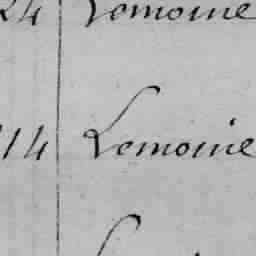 24 Lemoine
114 Lemoine